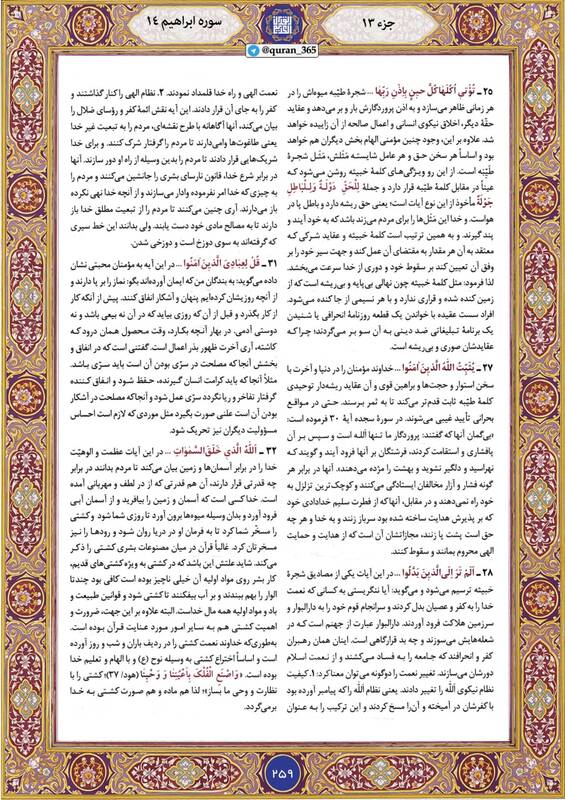 جزء ١٣
سوره ابراهیم ١٤
@quran_365
٢٥ ـ تُؤْتي أُكُلَهَا كُلَّ حينٍ بِإِذْنِ رَبِّهَا ... شجرهٔ طیّبه میوه‌اش را در
هر زمانی ظاهر می‌سازد و به اذن پروردگارش بار و بر می‌دهد و عقاید
حقّهٔ دیگر، اخلاق نیکوی انسانی و اعمال صالحه از آن زاییده خواهد
شد. علاوه بر این، وجود چنین مؤمنی الهام بخش دیگران هم خواهد
بود و اساساً هر سخن حق و هر عامل شایسته، مَثَلش، مَثَل شجرهٔ
طیّبه است. از این رو ویژگی‌های کلمهٔ خبیثه روشن می‌شود که
عیناً در مقابل کلمهٔ طیّبه قرار دارد و جملهٔ لِلْحَقِّ دَوْلَةٌ وَ لِلْبَاطِلِ
جَوْلَةٌ مأخوذ از این نوع آیات است؛ یعنی حق ریشه دارد و باطل پا در
هواست. و خدا این مَثَل‌ها را برای مردم می‌زند باشد که به خود آیند و
پند گیرند. و به همین ترتیب است کلمهٔ خبیثه و عقاید شرکی که
معتقد به آن هر مقدار به مقتضای آن عمل کند و جهت سیر خود را بر
وفق آن تعیین کند بر سقوط خود و دوری از خدا سرعت می‌بخشد.
لذا فرمود: مثل کلمهٔ خبیثه چون نهالی بی‌پایه و بی‌ریشه است که از
زمین کنده شده و قراری ندارد و با هر نسیمی از جا کنده می‌شود.
افراد سست عقیده با خواندن یک قطعه روزنامهٔ انحرافی یا شنیدن
یک برنامهٔ تبلیغاتی ضد دینی به آن سو بر می‌گردند؛ چرا که
عقایدشان صوری و بی‌ریشه است.
٢٧ ـ يُثَبِّتُ اللهُ الَّذينَ آمَنُوا ... خداوند مؤمنان را در دنیا و آخرت با
سخن استوار و حجت‌ها و براهین قوی و آن عقاید ریشه‌دار توحیدی
کلمهٔ طیّبه ثابت قدم‌تر می‌کند تا به ثمر برسند. حتی در مواقع
بحرانی تأیید غیبی می‌شوند. در سورهٔ سجده آیهٔ ٣٠ فرموده است:
«بی‌گمان آنها که گفتند: پروردگار ما تنها اللّه است و سپس بر آن
پافشاری و استقامت کردند، فرشتگان بر آنها فرود آیند و گویند که
نهراسید و دلگیر نشوید و بهشت را مژده می‌دهند». آنها در برابر هر
گونه فشار و آزار مخالفان ایستادگی می‌کنند و کوچک‌ترین تزلزل به
خود راه نمی‌دهند و در مقابل، آنها که از فطرت سلیم خدادادی خود
که بر پذیرش هدایت ساخته شده بود سرباز زنند و به خدا و هر چه
حق است پشت پا زنند، مجازاتشان آن است که از هدایت و حمایت
الهی محروم بمانند و سقوط کنند.
٢٨ ـ اَلَمْ تَرَ اِلَى الَّذينَ بَدَّلُوا ... در این آیات یکی از مصادیق شجرهٔ
خبیثه ترسیم می‌شود و می‌گوید: آیا ننگریستی به کسانی که نعمت
خدا را به کفر و عصیان بدل کردند و سرانجام قوم خود را به دارالبوار و
سرزمین هلاکت فرود آوردند. دارالبوار عبارت از جهنم است که در
شعله‌هایش می‌سوزند و چه بد قرارگاهی است. اینان همان رهبران
کفر و انحرافند که جامعه را به فساد می‌کشند و از نعمت اسلام
دورشان می‌سازند. تغییر نعمت را دوگونه می‌توان معنا کرد: ١. کیفیت
نظام نیکوی اللّه را تغییر دادند. یعنی نظام اللّه را که پیامبر آورده بود
با کفرشان در آمیخته و آن را مسخ کردند و این ترکیب را به عنوان
نعمت الهی و راه خدا قلمداد نمودند. ٢. نظام الهی را کنار گذاشتند و
کفر را به جای آن قرار دادند. این آیه نقش ائمهٔ کفر و رؤسای ضلال را
بیان می‌کند، آنها آگاهانه با طرح نقشه‌ای، مردم را به تبعیت غیر خدا
یعنی طاغوت‌ها وامی‌دارند تا مردم را گرفتار شرک کنند. و برای خدا
شریک‌هایی قرار دادند تا مردم را بدین وسیله از راه او دور سازند. آنها
در برابر شرع خدا، قانون نارسای بشری را جانشین می‌کنند و مردم را
به چیزی که خدا امر نفرموده وادار می‌سازند و از آنچه خدا نهی نکرده
باز می‌دارند. آری چنین می‌کنند تا مردم را از تبعیت مطلق خدا باز
دارند تا به مصالح مادی خود دست یابند. ولی بدانند این خط سیری
که گرفته‌اند به سوی دوزخ است و دوزخی شدن.
٣١ ـ قُلْ لِعِبَادِيَ الَّذينَ آمَنُوا ... در این آیه به مؤمنان محبتی نشان
داده می‌گوید: به بندگان من که ایمان آورده‌اند بگو: نماز را بر پا دارند و
از آنچه روزیشان کرده‌ایم پنهان و آشکار انفاق کنند. پیش از آنکه کار
از کار بگذرد و قبل از آن که روزی بیاید که در آن نه بیعی باشد و نه
دوستی آدمی. در بهار آنچه بکارد، وقت محصول همان درود که
کاشته، آری آخرت ظهور بذر اعمال است. گفتنی است که در انفاق و
بخشش آنجا که مصلحت در سرّی بودن آن است باید سرّی باشد.
مثلاً آنجا که باید کرامت انسان گیرنده، حفظ شود و انفاق کننده
گرفتار تفاخر و ریا نگردد سرّی عمل شود و آنجا که مصلحت در آشکار
بودن آن است علنی صورت بگیرد مثل موردی که لازم است احساس
مسؤولیت دیگران نیز تحریک شود.
٣٢ ـ اَللهُ الَّذي خَلَقَ السَّمٰوَاتِ ... در این آیات عظمت و الوهیّت
خدا را در برابر آسمان‌ها و زمین بیان می‌کند تا مردم بدانند در برابر
چه قدرتی قرار دارند، آن هم قدرتی که از در لطف و مهربانی آمده
است. خدا کسی است که آسمان و زمین را بیافرید و از آسمان آبی
فرود آورد و بدان وسیله میوه‌ها برون آورد تا روزی شما شود و کشتی
را مسخّر شما کرد تا به فرمان او در دریا روان شود و رودها را نیز
مسخرتان کرد. غالباً قرآن در میان مصنوعات بشری کشتی را ذکر
می‌کند. شاید علتش این باشد که در کشتی به ویژه کشتی‌های قدیم،
کار بشر روی مواد اولیه آن خیلی ناچیز بوده است کافی بود چند تا
الوار را بهم ببندند و بر آب بیفکنند تا کشتی شود و قوانین طبیعت و
باد و مواد اولیه همه مال خداست. البته علاوه بر این جهت، ضرورت و
اهمیت کشتی هم به سایر امور مورد عنایت قرآن بوده است.
به‌طوری‌که خداوند نعمت کشتی را در ردیف باران و شب و روز آورده
است و اساساً اختراع کشتی به وسیله نوح (ع) و با الهام و تعلیم خدا
بوده است. «وَ اصْنَعِ الْفُلْكَ بِأَعْيُنِنَا وَ وَحْيِنَا (هود/ ٣٧)؛ کشتی را با
نظارت و وحی ما بساز»؛ لذا هم ماده و هم صورت کشتی به خدا
برمی‌گردد.
٢٥٩